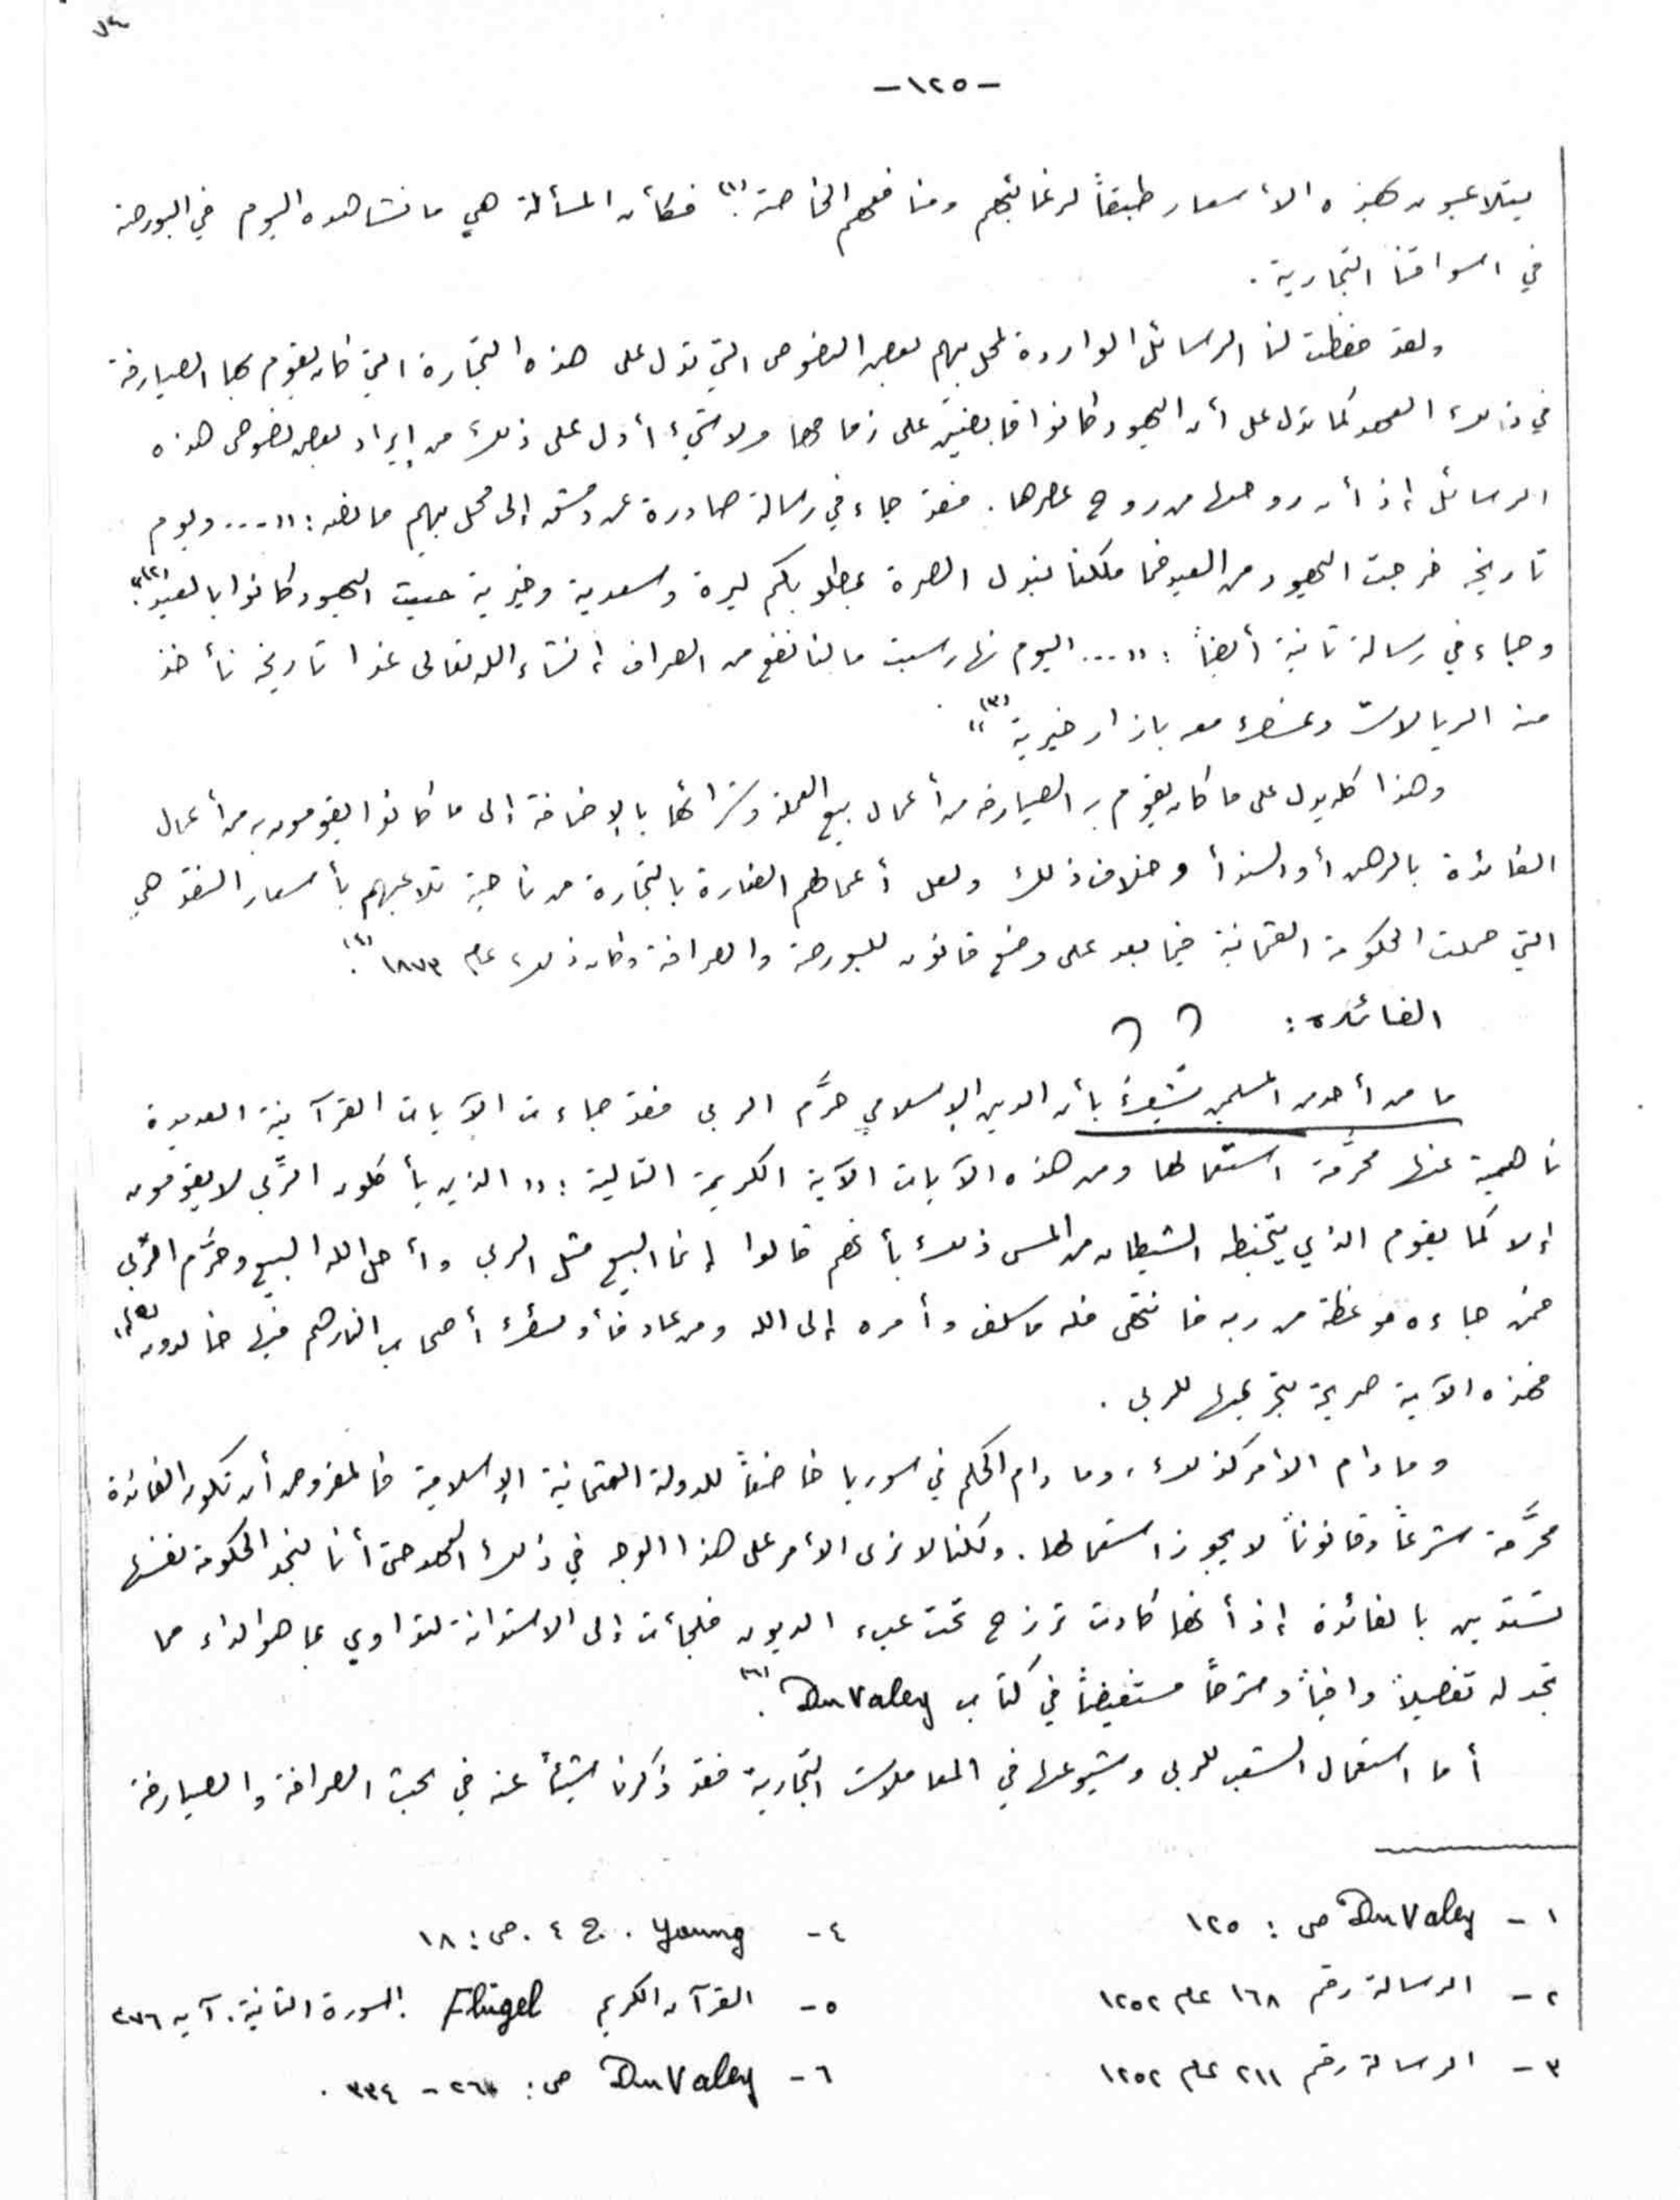 ٧٤
-١٢٥-
يتلاعبون بهذه الأسعار طبقاً لرغائبهم ومنافعهم الخاصة(١). فكأن المسألة هي ما نشاهده اليوم في البورصة
في اسواقنا التجارية.
ولقد حفظت لنا الرسائل الواردة لمحل بيهم بعض النصوص التي تدل على هذه التجارة التي كان يقوم بها الصيارفة
في ذلك العهد كما تدل على أن اليهود كانوا قابضين على زمامها ولا شيء أدل على ذلك من إيراد بعض نصوص هذه
الرسائل إذ أن روحها من روح عصرها. فقد جاء في رسالة صادرة عن دمشق إلى محل بيهم ما نصه: «... ويوم
تاريخه خرجت اليهود من العيد فما ملكنا نبدل الصرة بمطلوبكم ليرة وسعدية وخيرية حيث اليهود كانوا بالعيد(٢)».
وجاء في رسالة ثانية أيضاً: «... اليوم نهار سبت ما لنا نفع من الصراف إنشاء الله تعالى غدا تاريخه نأخذ
منه الريالات ونمسك معه بازار خيرية(٣)»
وهذا كله يدل على ما كان يقوم به الصيارفه من أعمال بيع العملة وشرائها بالإضافة إلى ما كانوا يقومون به من أعمال
الفائدة بالرهن أو السندأ وخلاف ذلك ولعل أعمالهم الضارة بالتجارة من ناحية تلاعبهم بأسعار النقد هي
التي حملت الحكومة العثمانية فيما بعد على وضع قانون للبورصة والصرافة وكان ذلك عام ١٨٧٣(٤).
الفائدة:
ما من أحد من المسلمين يشك بأن الدين الإسلامي حرَّم الربى فقد جاءت الآيات القرآنية العديدة
ناهية عنها محرَّمة استعمالها ومن هذه الآيات الآية الكريمة التالية: «الذين يأكلون الرِّبى لا يقومون
إلا كما يقوم الذي يتخبطه الشيطان من المس ذلك بأنهم قالوا إنما البيع مثل الربى وأحل الله البيع وحرَّم الرِّبى
فمن جاءه موعظة من ربه فانتهى فله ما سلف وأمره إلى الله ومن عاد فأولئك أصحاب النار هم فيها خالدون(٥)»
فهذه الآية صريحة بتحريمها للربى.
وما دام الأمر كذلك، وما دام الحكم في سوريا خاضعاً للدولة العثمانية الإسلامية فالمفروض أن تكون الفائدة
محرَّمة شرعاً وقانوناً لا يجوز استعمالها. ولكننا لا نرى الأمر على هذا الوجه في ذلك العهد حتى أنا لنجد الحكومة نفسها
تستدين بالفائدة إذ أنها كادت ترزح تحت عبء الديون فلجأت إلى الاستدانة لتداوي بما هو الداء مما
تجد له تفصيلاً وافياً وشرحاً مستفيضاً في كتاب DuValey(٦).
أما استعمال الشعب للربى وشيوعها في المعاملات التجارية فقد ذكرنا شيئاً عنه في بحث الصرافة والصيارفة
١- DuValey ص: ١٢٥
٢- الرسالة رقم ١٦٨ عام ١٢٥٢
٣- الرسالة رقم ٢١١ عام ١٢٥٢
٤- Young. ج ٤. ص: ١٨
٥- القرآن الكريم Flügel. السورة الثانية. آيه ٢٧٦
٦- DuValey ص: - ٣٣٤.